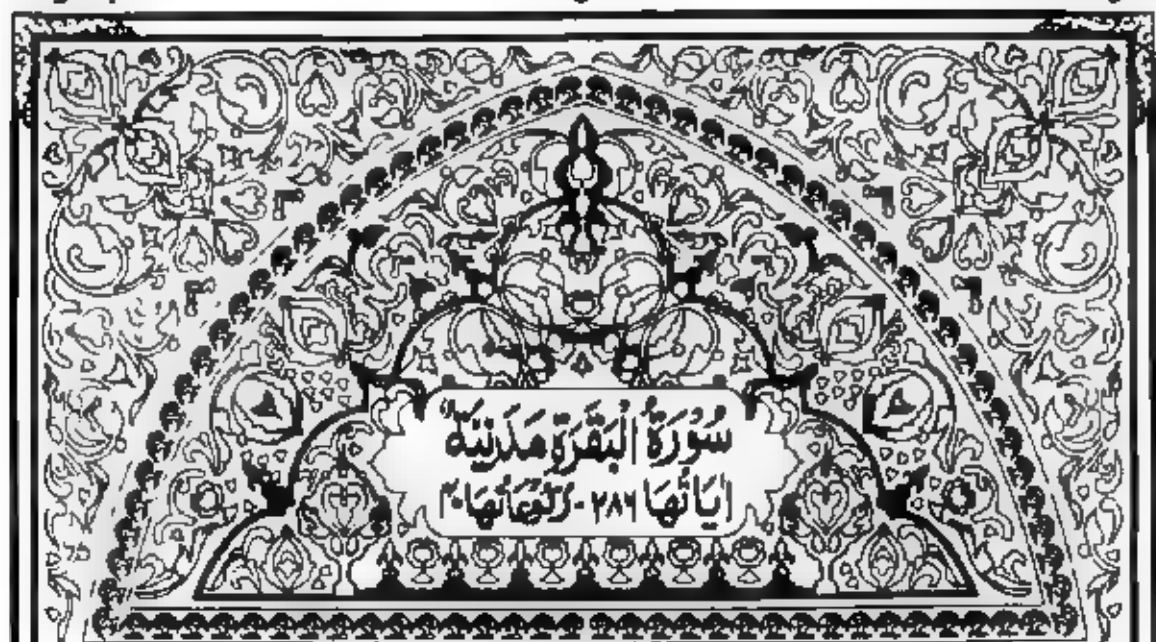 سُوْرَةُ الْبَقَرَةِ مَدَنِيَّةٌ
اٰيَاتُهَا ٢٨٦ - رُكُوْعَاتُهَا ٤٠